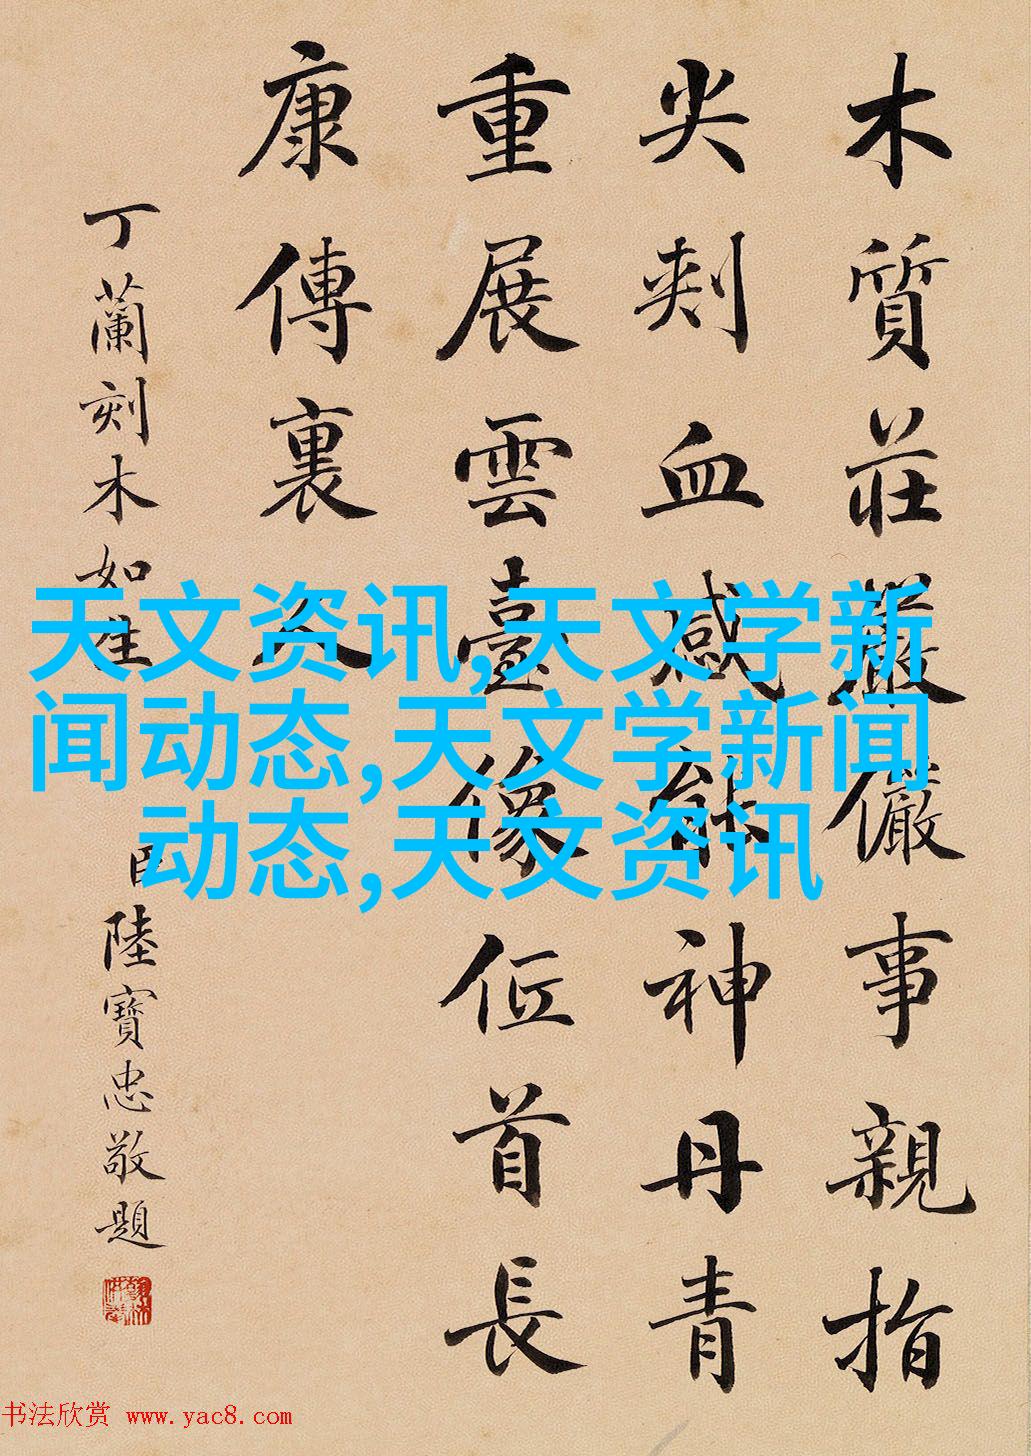 木質莊嚴儼事親指
尖刾血感能神丹青
重展雲臺像低首長
康傳裏人
丁蘭刻木如生
臣陸寶忠敬題
天文资讯,天文学新
闻动态,天文学新闻
动态,天文资讯
书法欣赏 www.yac8.com